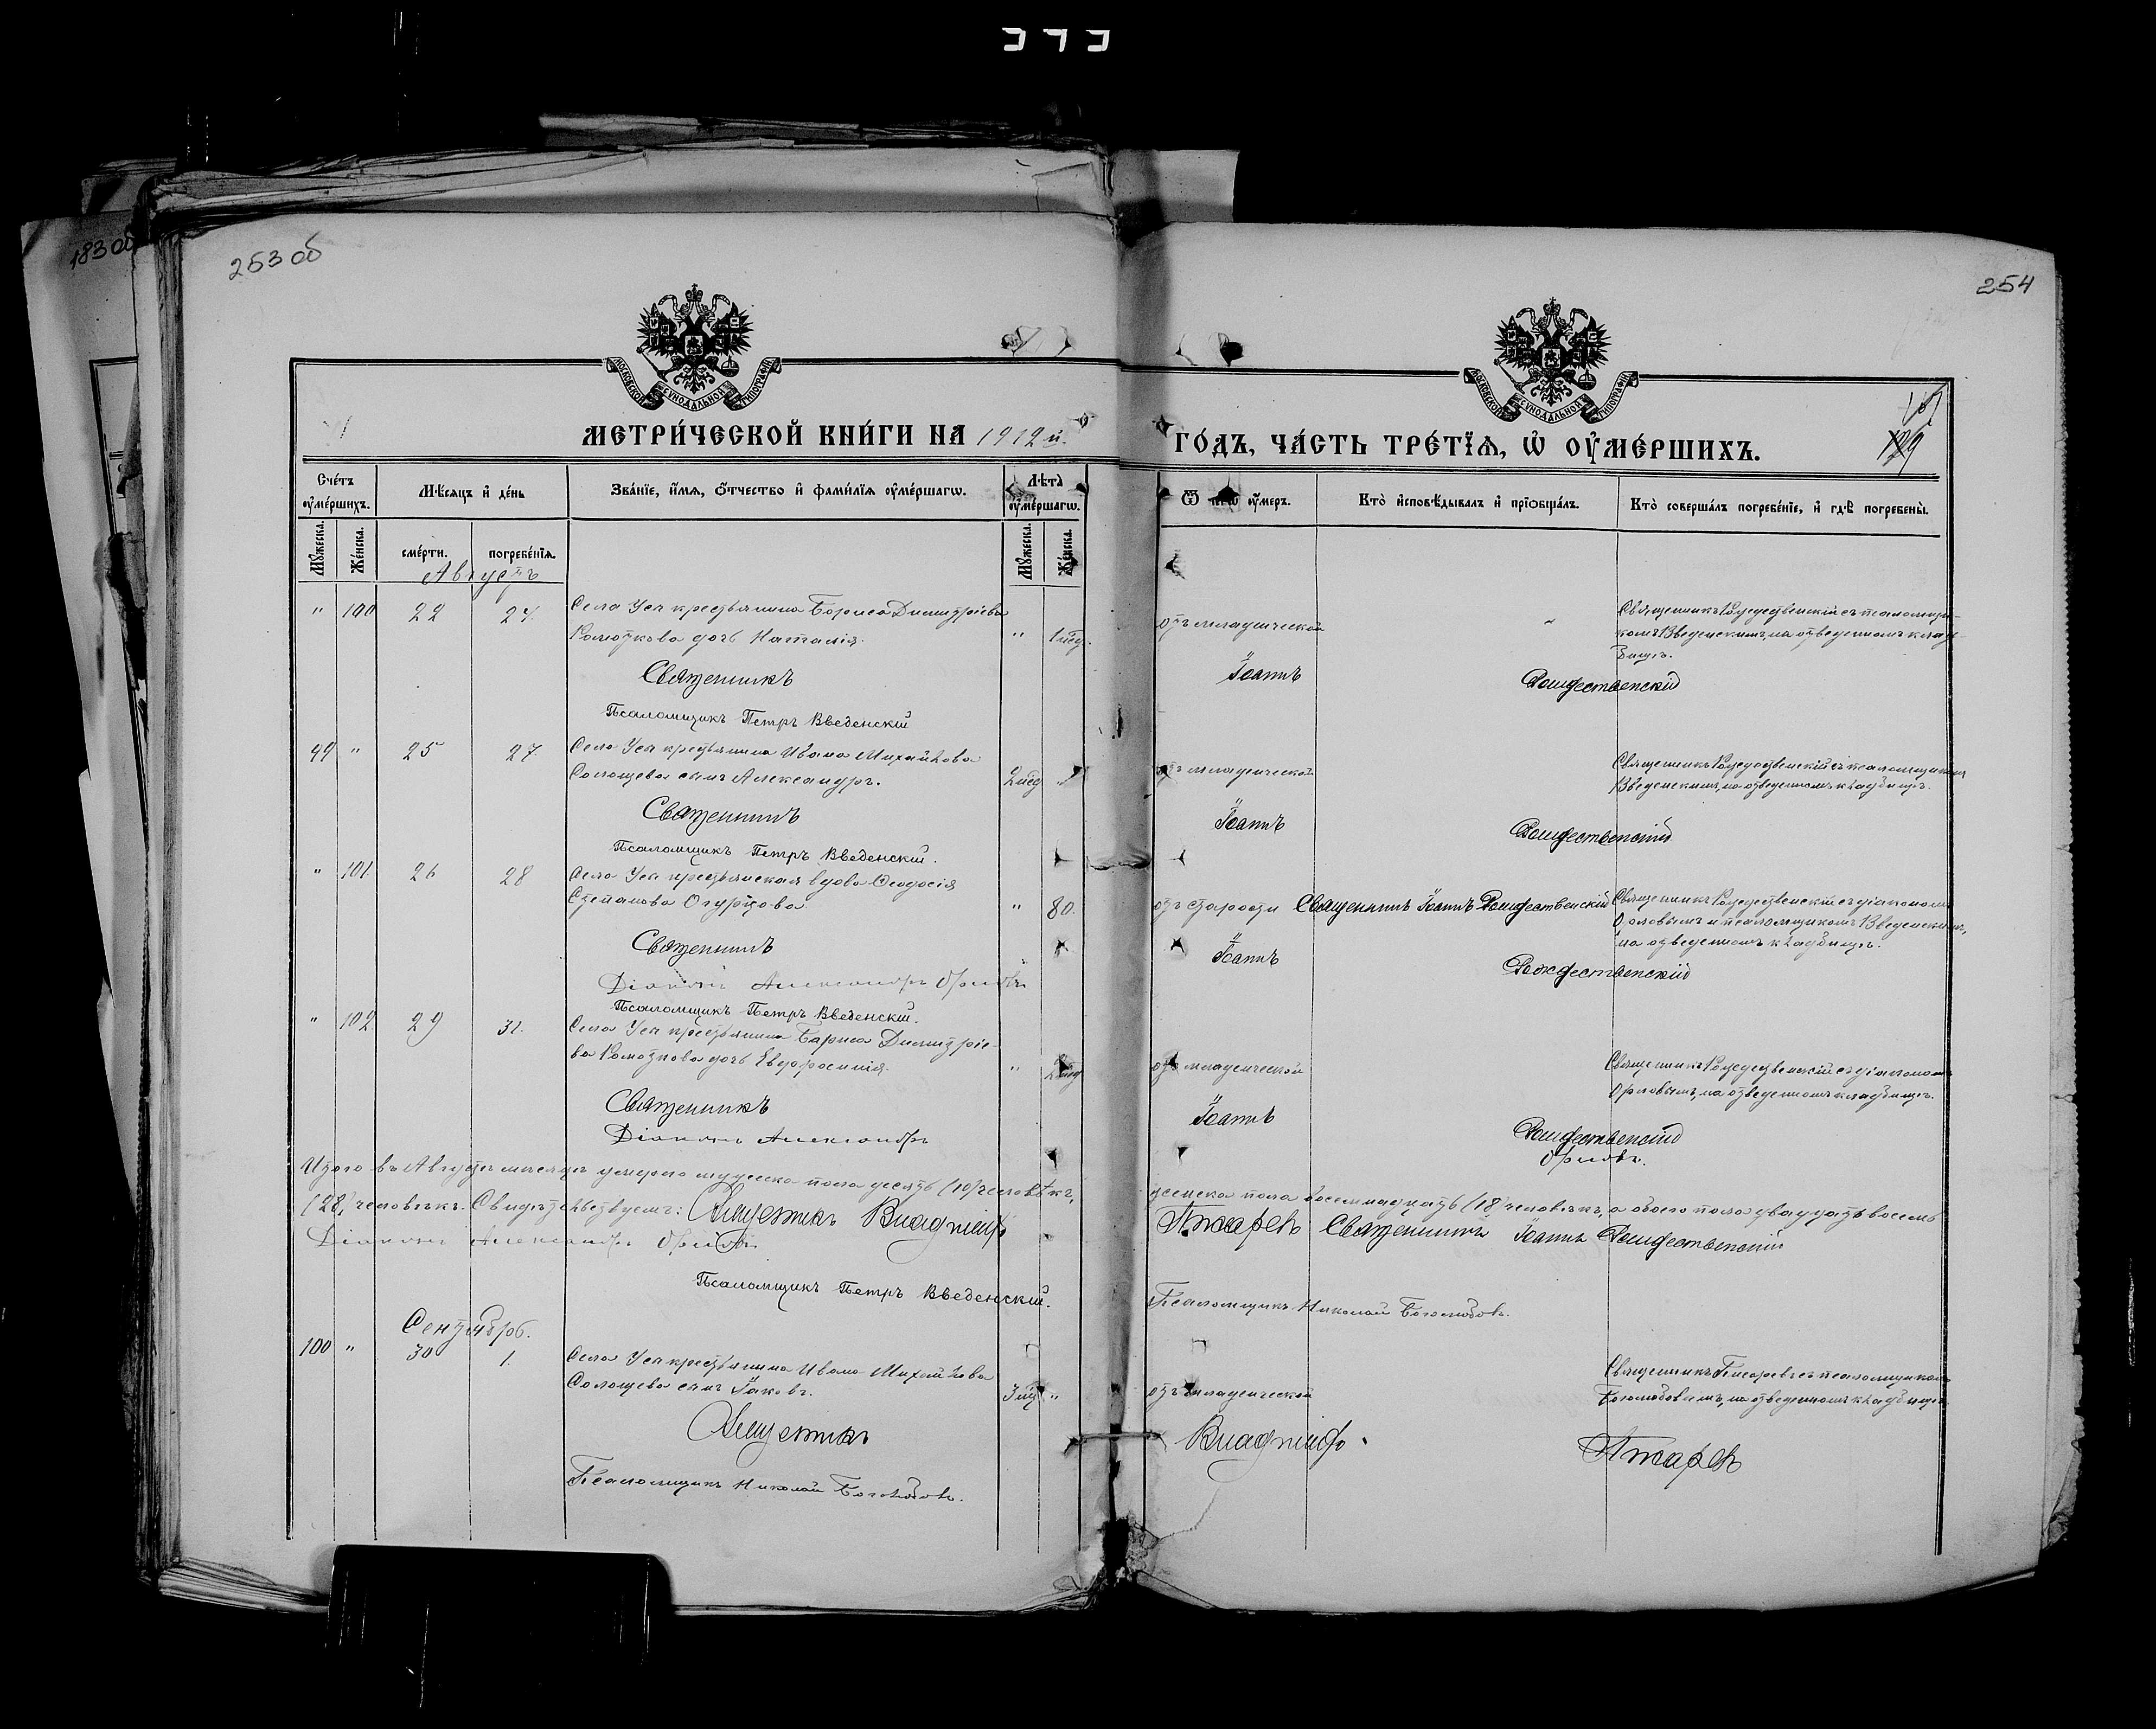 183 об
253 об
254
МОСКОВСКОЙ СѴНОДАЛЬНОЙ ТИПОГРАФІИ
МОСКОВСКОЙ СѴНОДАЛЬНОЙ ТИПОГРАФІИ
МЕТРИ́ЧЕСКОЙ КНИ́ГИ НА 1912 й.
ГО́ДЪ, ЧА́СТЬ ТРЕ́ТЇѦ, Ѡ҆ ОУ҆МЕ́РШИХЪ.
Сче́тъ оу҆ме́ршихъ.
Мѣ́сѧцъ и҆ де́нь
Зва́нїе, и҆́мѧ, ѻ҆́тчество и҆ фами́лїѧ оу҆ме́ршагѡ.
Лѣ́та оу҆ме́ршагѡ.
оу҆́меръ.
Кто̀ и҆сповѣ́дывалъ и҆ прїѻбща́лъ.
Кто̀ соверша́лъ погребе́нїе, и҆ гдѣ̀ погребены̀.
Мꙋ́жеска. Же́нска. сме́рти. погребе́нїѧ. Мꙋ́жеска. Же́нска.
Августъ
" 100 22 24. Села Усл крестьянина Бориса Димитріева
дочь Наталія. " 1 нед.
отъ младенческой
Священникъ Рождественскій съ псаломщи-
комъ Введенскимъ, на отведенномъ клад-
бищѣ.
Священникъ Іоаннъ Рождественскій
Псаломщикъ Петръ Введенскій
99 " 25 27. Села Усл крестьянина Ивана Михайлова
Солощева сынъ Александръ. 2 нед "
отъ младенческой
Священникъ Рождественскій съ псаломщикомъ
Введенскимъ, на отведенномъ кладбищѣ.
Священникъ Іоаннъ Рождественскій
Псаломщикъ Петръ Введенскій.
" 101. 26 28 Села Усл крестьянская вдова Ѳеодосія
Степанова Огурцова. " 80.
отъ старости Священникъ Іоаннъ Рождественскій
Священникъ Рождественскій съ діакономъ
Орловымъ и псаломщикомъ Введенскимъ,
на отведенномъ кладбищѣ.
Священникъ Іоаннъ Рождественскій
Діаконъ Александръ Орловъ
Псаломщикъ Петръ Введенскій.
" 102 29 31. Села Усл крестьянина Бориса Димитріе-
ва дочь Евфросинія. " 2 нед
отъ младенческой
Священникъ Рождественскій съ діакономъ
Орловымъ, на отведенномъ кладбищѣ.
Священникъ Іоаннъ Рождественскій
Діаконъ Александръ Орловъ.
Итого въ Августѣ мѣсяцѣ умерло мужеска пола десять (10) человѣкъ, женска пола восемнадцать (18) человѣкъ, а обоего пола двадцать восемь
(28) человѣкъ. Свидѣтельствуемъ: Священникъ Священникъ Іоаннъ Рождественскій
Діаконъ Александръ Орловъ
Псаломщикъ Петръ Введенскій.
Псаломщикъ Николай Боголюбовъ.
Сентябрь.
100 " 30 1. Села Усл крестьянина Ивана Михайлова
Солощева сынъ Іаковъ. 3 нед "
отъ младенческой
Священникъ съ псаломщикомъ
Боголюбовымъ, на отведенномъ кладбищѣ.
Священникъ
Псаломщикъ Николай Боголюбовъ.